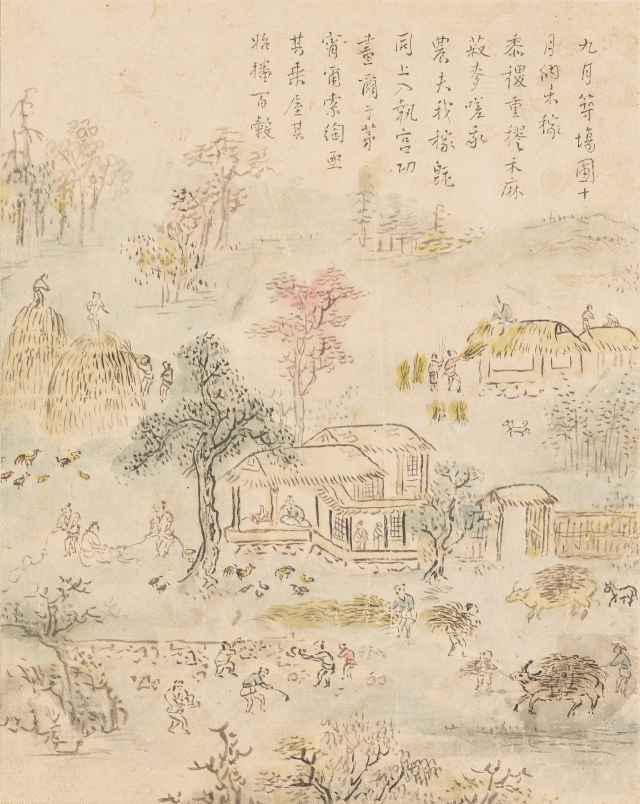 九月築塲圃十
月納禾稼
黍稷重穋禾麻
菽麥嗟我
農夫我稼旣
同上入執宮功
晝爾于茅
宵爾索綯亟
其乘屋其
始播百穀